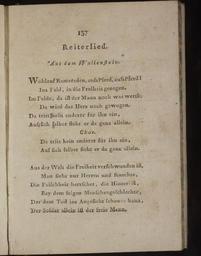 157
Reiterlied.
Aus dem Wallenstein.
Wohlauf Kameraden, aufs Pferd, aufs Pferd!
Ins Feld, in die Freiheit gezogen.
Im Felde, da ist der Mann noch was werth,
Da wird das Herz noch gewogen.
Da tritt kein anderer für ihn ein,
Auf sich selber steht er da ganz allein.
Chor.
Da tritt kein anderer für ihn ein,
Auf sich selber steht er da ganz allein.
Aus der Welt die Freiheit verschwunden ist,
Man sieht nur Herrn und Knechte,
Die Falschheit herrschet, die Hinterlist,
Bey dem feigen Menschengeschlechte,
Der dem Tod ins Angesicht schauen kann,
Der Soldat allein ist der freie Mann.